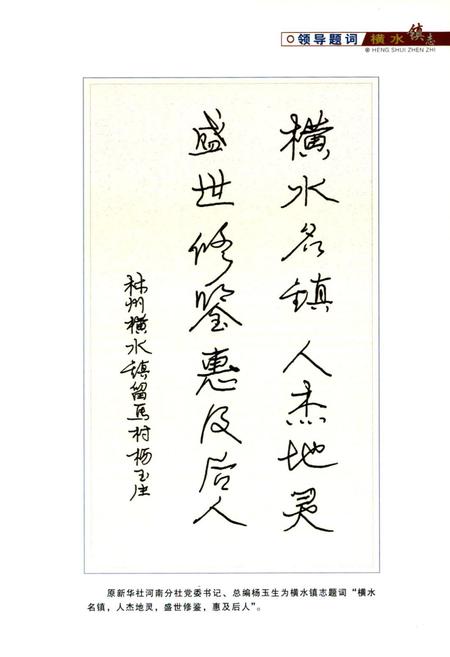 领导题词 横水镇志
HENG SHUI ZHEN ZHI
横水名镇人杰地灵
盛世修鉴惠及后人
林州横水镇留马村杨玉生
原新华社河南分社党委书记、总编杨玉生为横水镇志题词“横水
名镇，人杰地灵，盛世修鉴，惠及后人”。